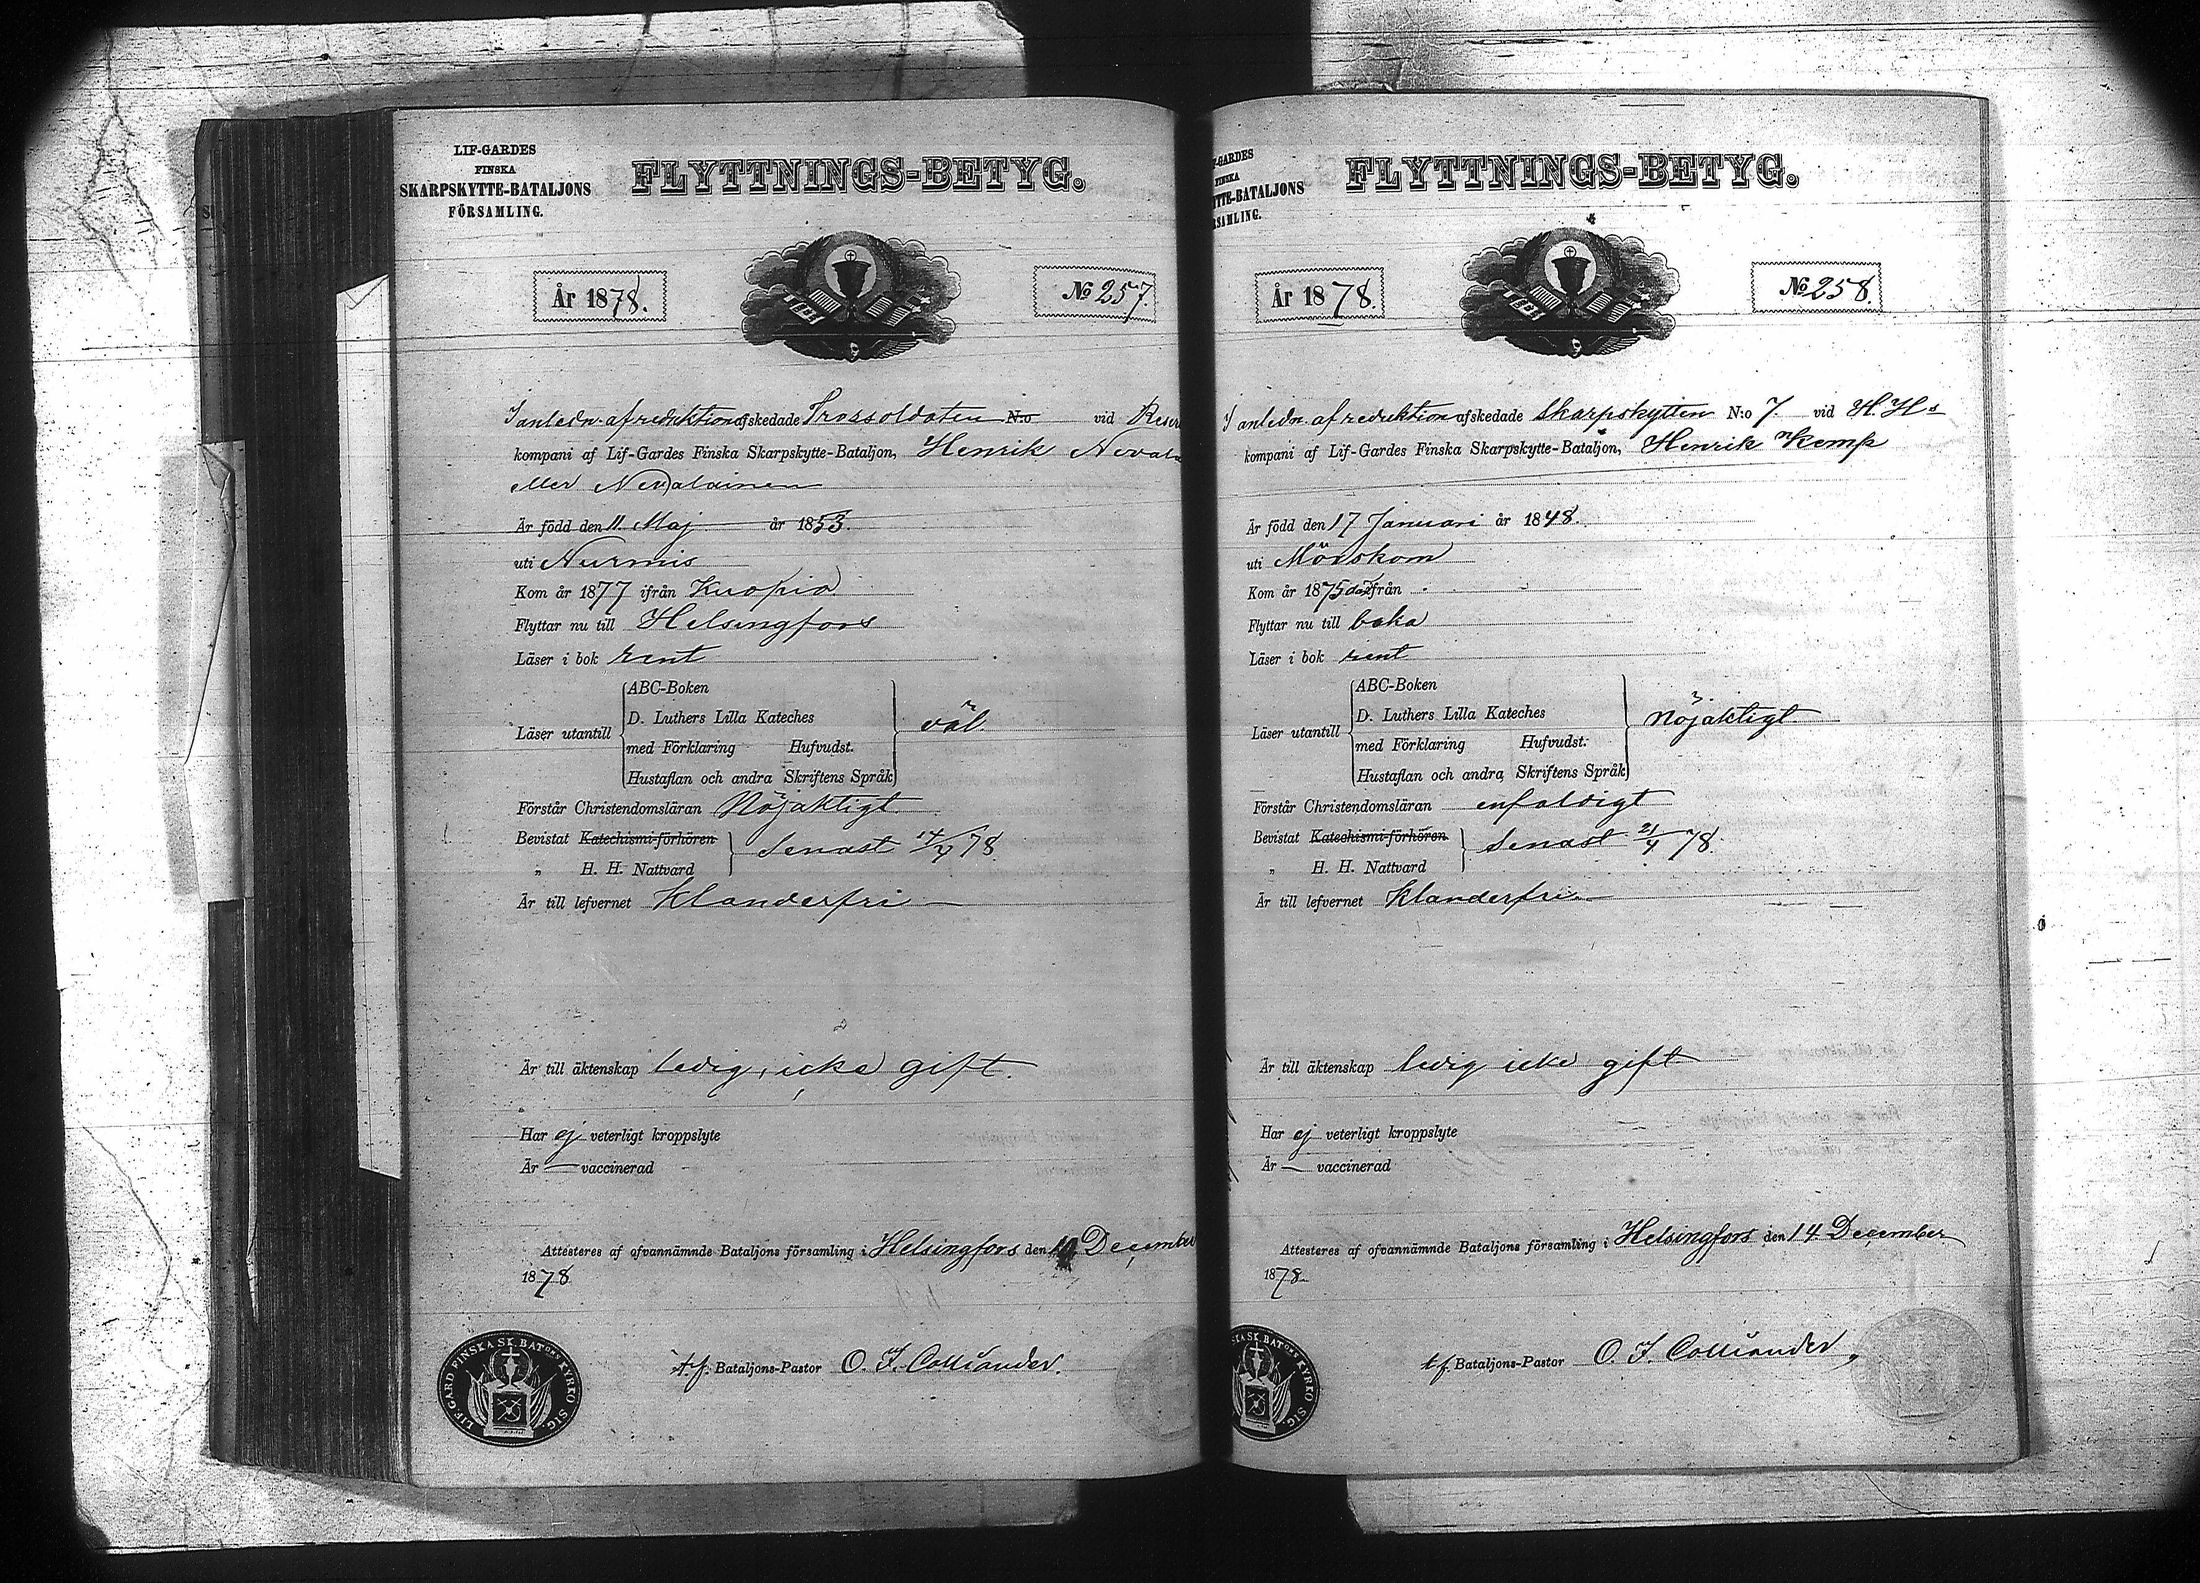 LIF-GARDES
FINSKA
SKARPSKYTTE-BATALJONS
FÖRSAMLING.
FLYTTNINGS-BETYG.
År 1878.
No 257.
I anledn. af reduktion afskedade Trossoldaten N:o vid Reser
kompani af Lif-Gardes Finska Skarpskytte-Bataljon, Henrik Neval
eller Nevalainen
Är född den 11 Maj år 1853
uti Nurmis
Kom år 1877 ifrån Kuopio
Flyttar nu till Helsingfors
Läser i bok rent
Läser utantill
ABC-Boken
D. Luthers Lilla Kateches
med Förklaring Hufvudst.
Hustaflan och andra Skriftens Språk
väl.
Förstår Christendomsläran Nöjaktigt
Bevistat Katechismi-förhören
„ H. H. Nattvard
Senast 14/4 78
Är till lefvernet Klanderfri
Är till äktenskap ledig, icke gift.
Har ej veterligt kroppslyte
Är — vaccinerad
Attesteres af ofvannämnde Bataljons församling i Helsingfors den December
1878
t.f. Bataljons-Pastor O. I. Colliander.
LIF-GARD. FINSKA SK. BAT:ONS KYRKO SIG.
-GARDES
FINSKA
TTE-BATALJONS
RSAMLING.
FLYTTNINGS-BETYG.
År 1878.
No 258.
I anledn. af reduktion afskedade Skarpskytten N:o 7 vid H. H:s
kompani af Lif-Gardes Finska Skarpskytte-Bataljon, Henrik Kemp
Är född den 17 Januari år 1848.
uti Mörskom
Kom år 1875 därifrån
Flyttar nu till
Läser i bok rent
Läser utantill
ABC-Boken
D. Luthers Lilla Kateches
med Förklaring Hufvudst.
Hustaflan och andra Skriftens Språk
Nöjaktigt
Förstår Christendomsläran enfaldigt
Bevistat Katechismi-förhören
„ H. H. Nattvard
Senast 21/4 78.
Är till lefvernet Klanderfri
Är till äktenskap ledig icke gift
Har ej veterligt kroppslyte
Är — vaccinerad
Attesteres af ofvannämnde Bataljons församling i Helsingfors den 14 December
1878.
t.f. Bataljons-Pastor O. I. Colliander,
SKA SK. BAT:ONS KYRKO SIG.